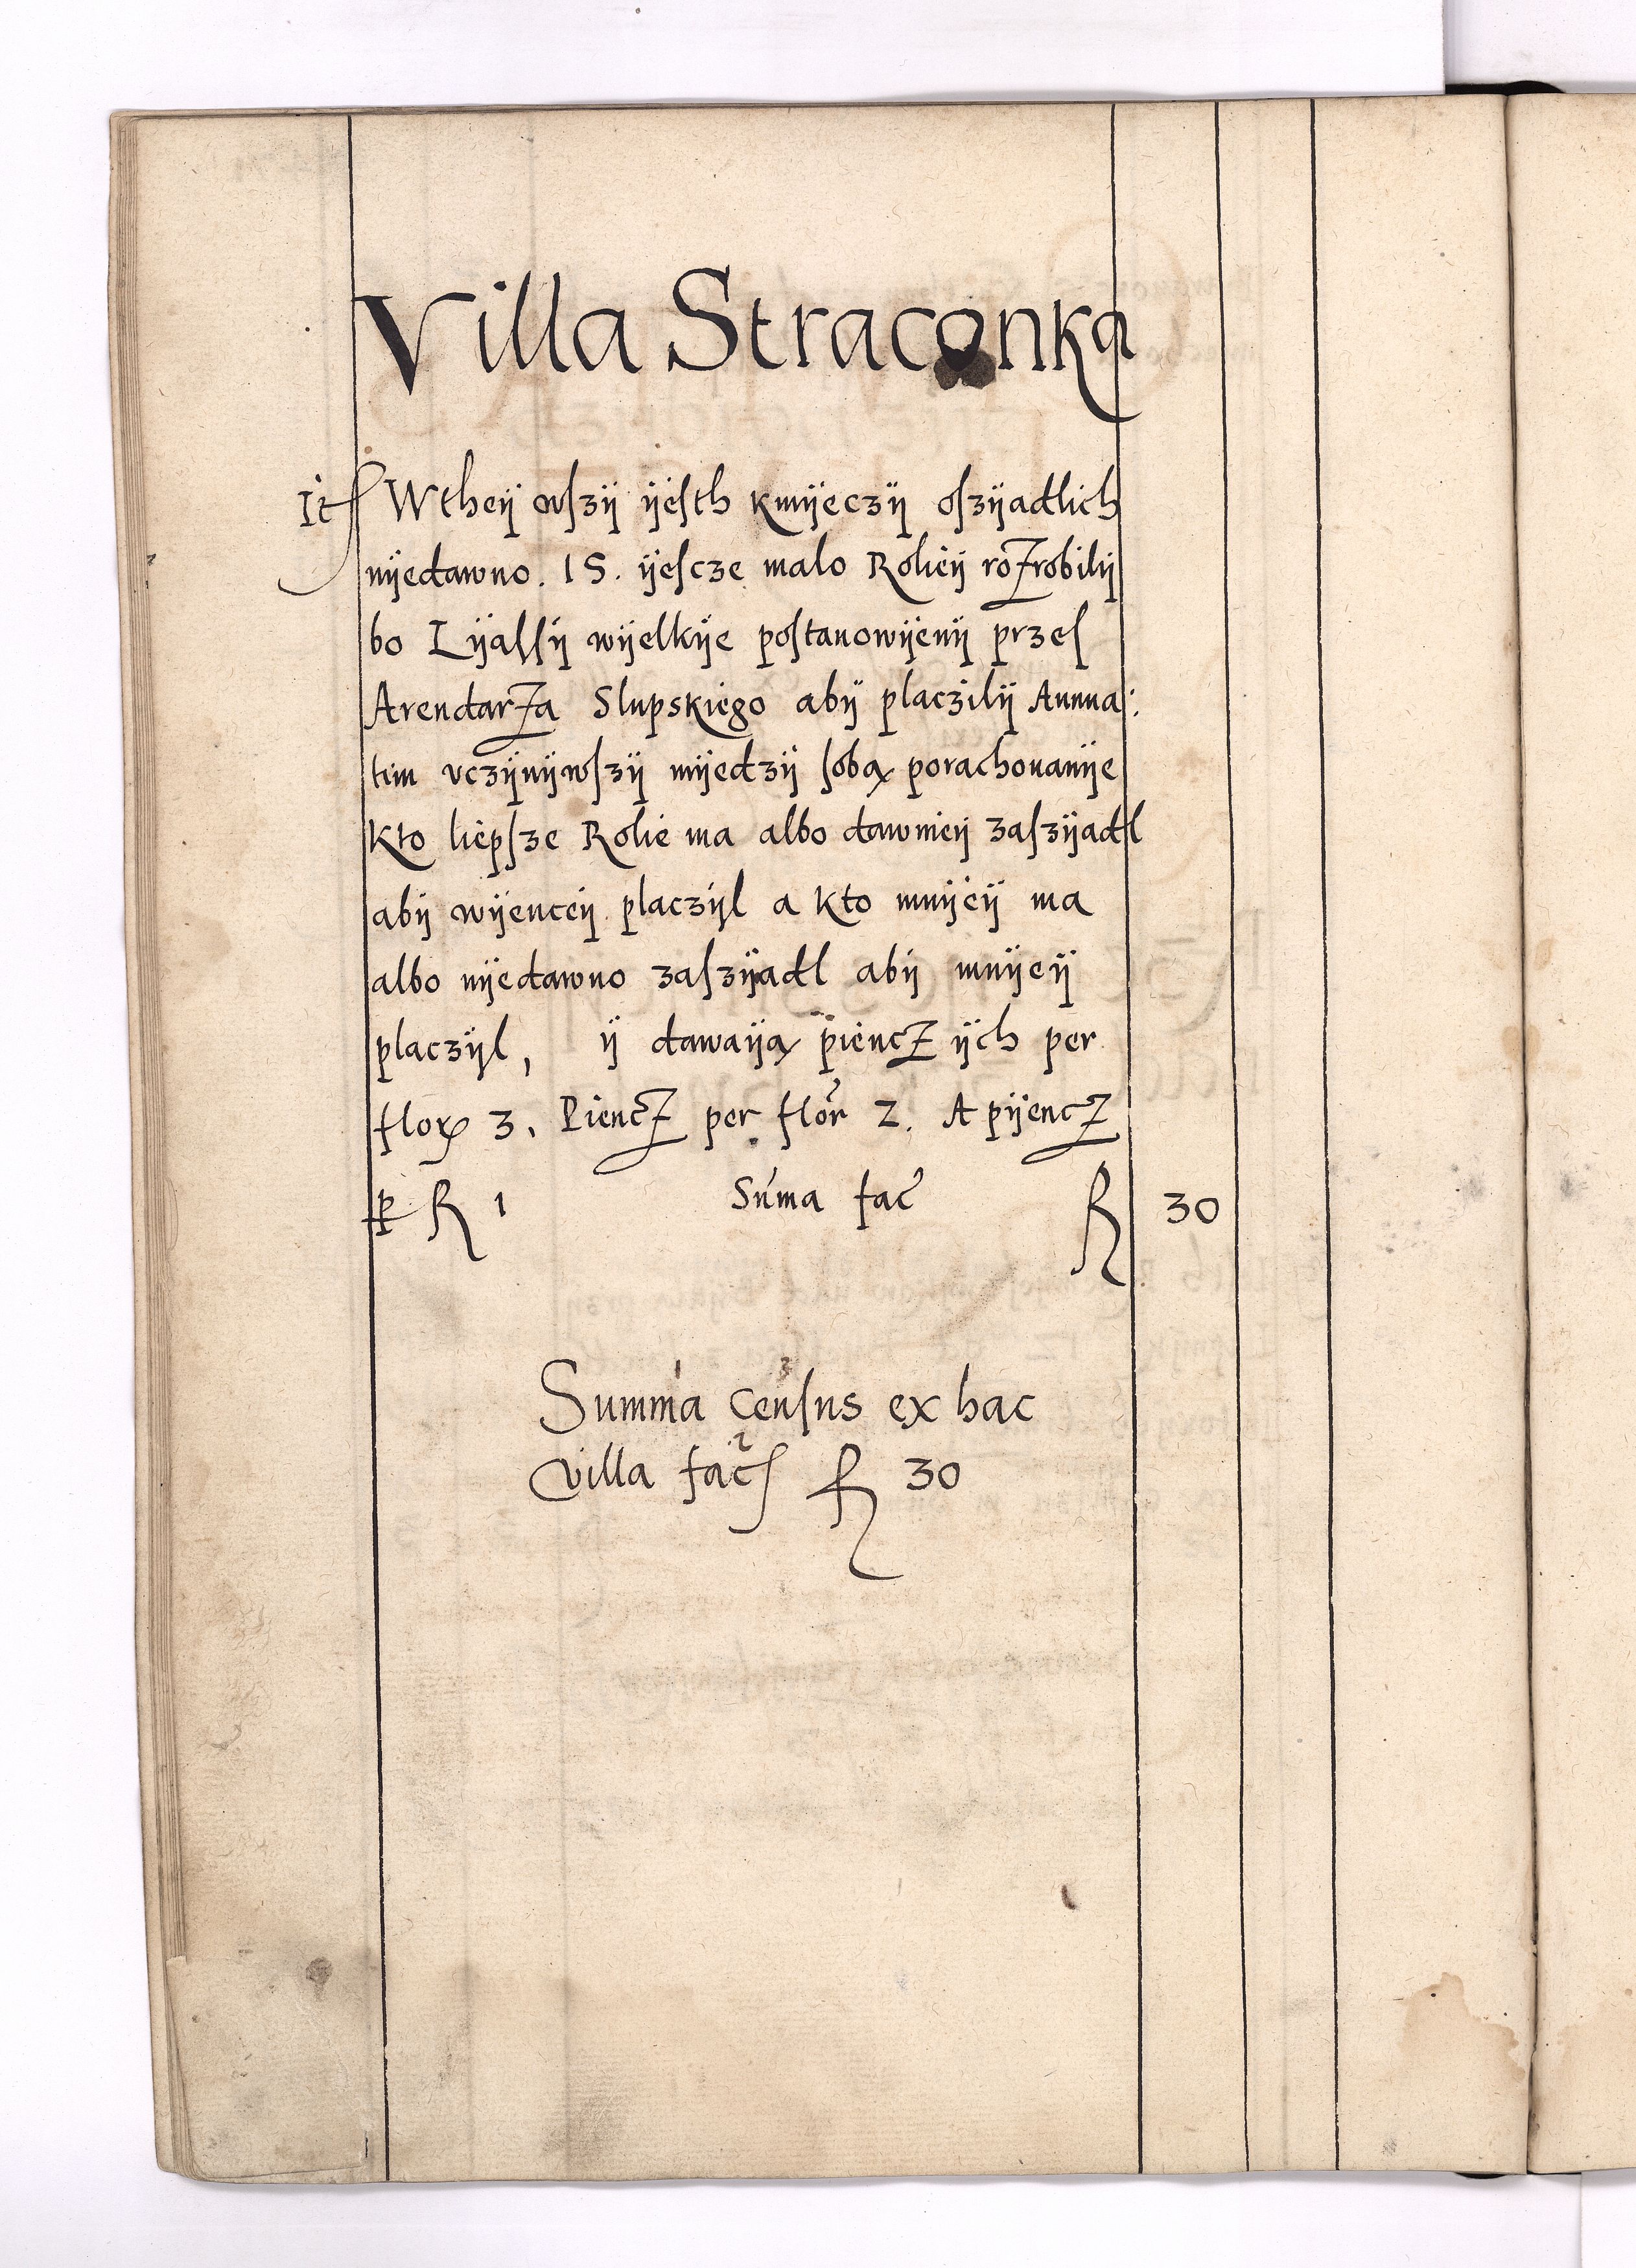 Villa Straconka
It Wtheÿ wſzÿ ÿeſth kmÿeczÿ oſzÿadlich
nÿedawno. 15. ÿeſcze malo Roliеÿ rozrobilÿ
bo Lÿaſſÿ wÿelkÿe poſtanowÿenÿ przeſ
Arendarza Slupskiego abÿ placzilÿ Annua:
tim vczÿnÿwſzÿ mÿedzÿ ſobą porachovanÿe
kto liepſze Rolie ma albo dawnieÿ zaſzÿadl
abÿ wÿenceÿ placzÿl a kto mnÿeÿ ma
albo nÿedawno zaſzÿadl abÿ mnÿeÿ
placzÿl, ÿ dawaÿą piencz ÿch per
flor 3. Piencz per flor 2. A pÿencz
p fl 1 Suma fac fl 30
Summa cenſus ex hac
villa fac fl 30